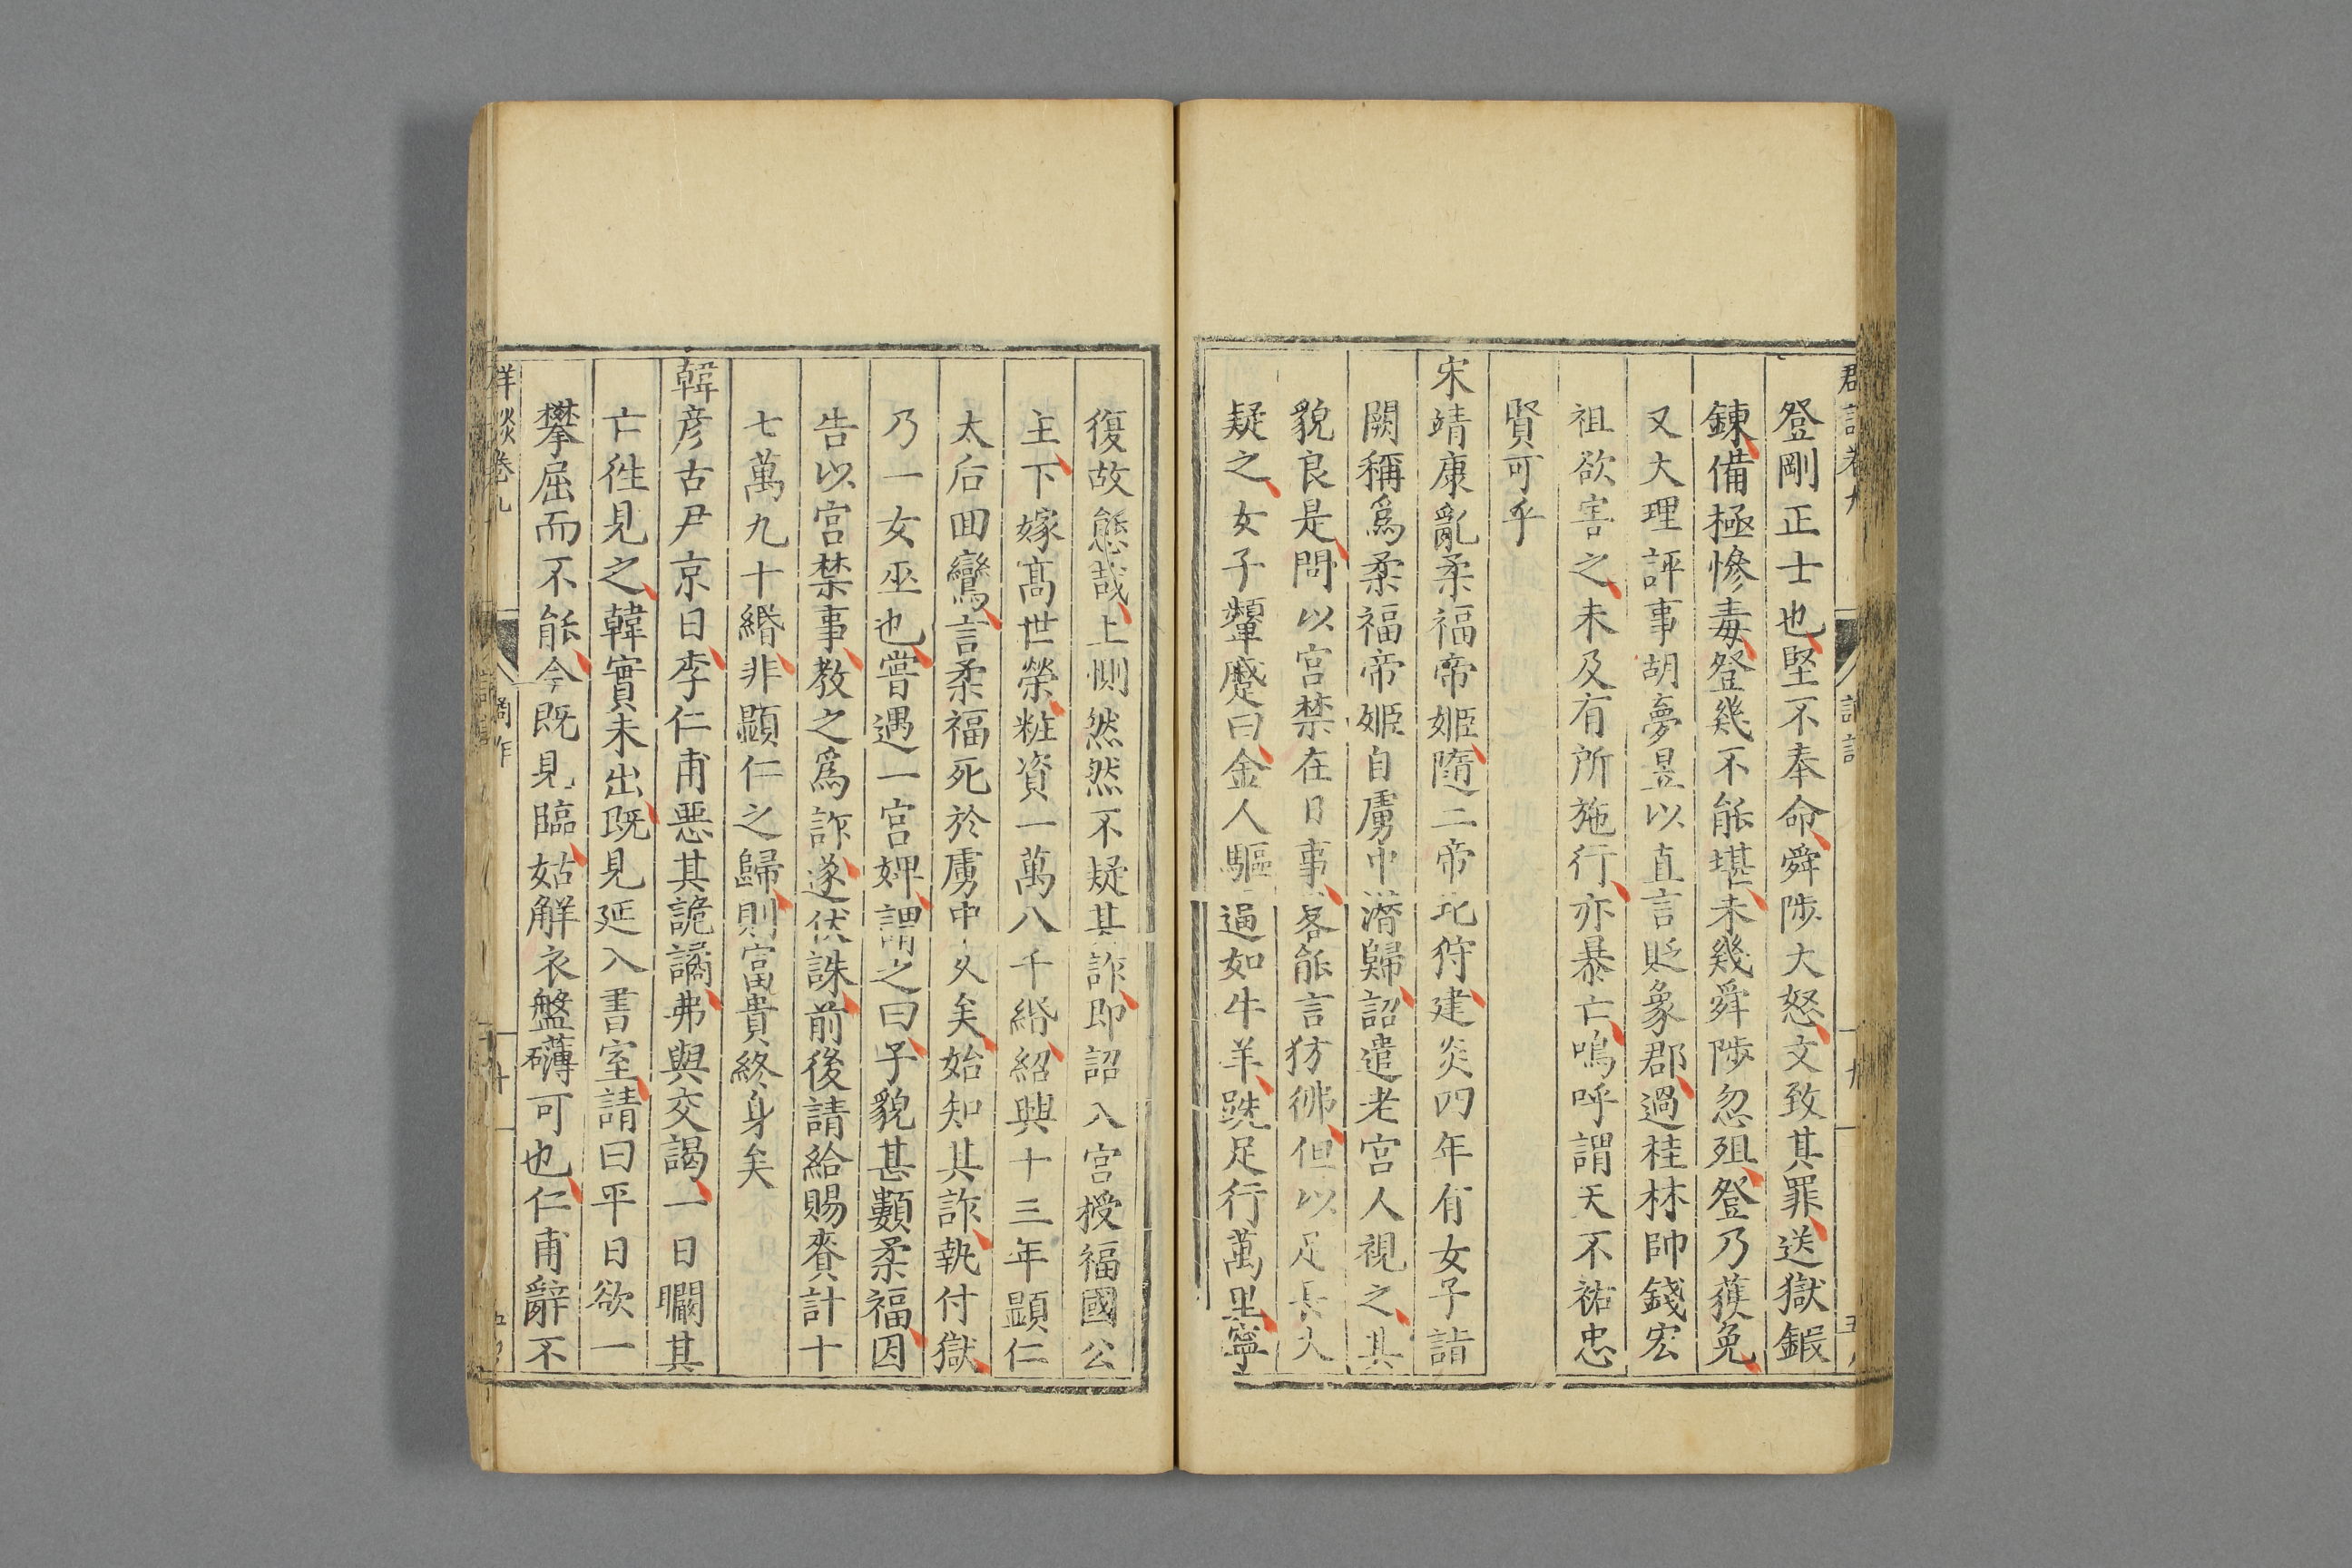 登剛正士也堅不奉命舜陟大怒文致其罪送獄鍛
鍊備極慘毒登幾不能堪未幾舜陟忽殂登乃獲免
又大理評事胡夢昱以直言貶象郡過桂林帥錢宏
祖欲害之未及有所施行亦暴亡嗚呼謂天不祐忠
賢可乎
宋靖康亂柔福帝姬隨二帝北狩建炎四年有女子詣
闕稱爲柔福帝姬自虜中潛歸詔遣老宮人視之其
貌良是問以宮禁在日事畧能言彷彿但以足長大
疑之女子顰蹙曰金人驅逼如牛羊跣足行萬里寧
復故態哉上惻然然不疑其詐即詔入宮授福國公
主下嫁髙世榮粧資一萬八千緡紹興十三年顯仁
太后回鸞言柔福死於虜中久矣始知其詐執付獄
乃一女巫也嘗遇一宮婢謂之曰子貌甚𩔖柔福因
告以宮禁事教之爲詐遂伏誅前後請給賜賚計十
七萬九十緡非顯仁之歸則富貴終身矣
韓彦古尹京日李仁甫惡其詭譎弗與交謁一日矙其
亡徃見之韓實未出既見延入書室請曰平日欲一
攀屈而不能今既見臨姑解衣盤礴可也仁甫辭不